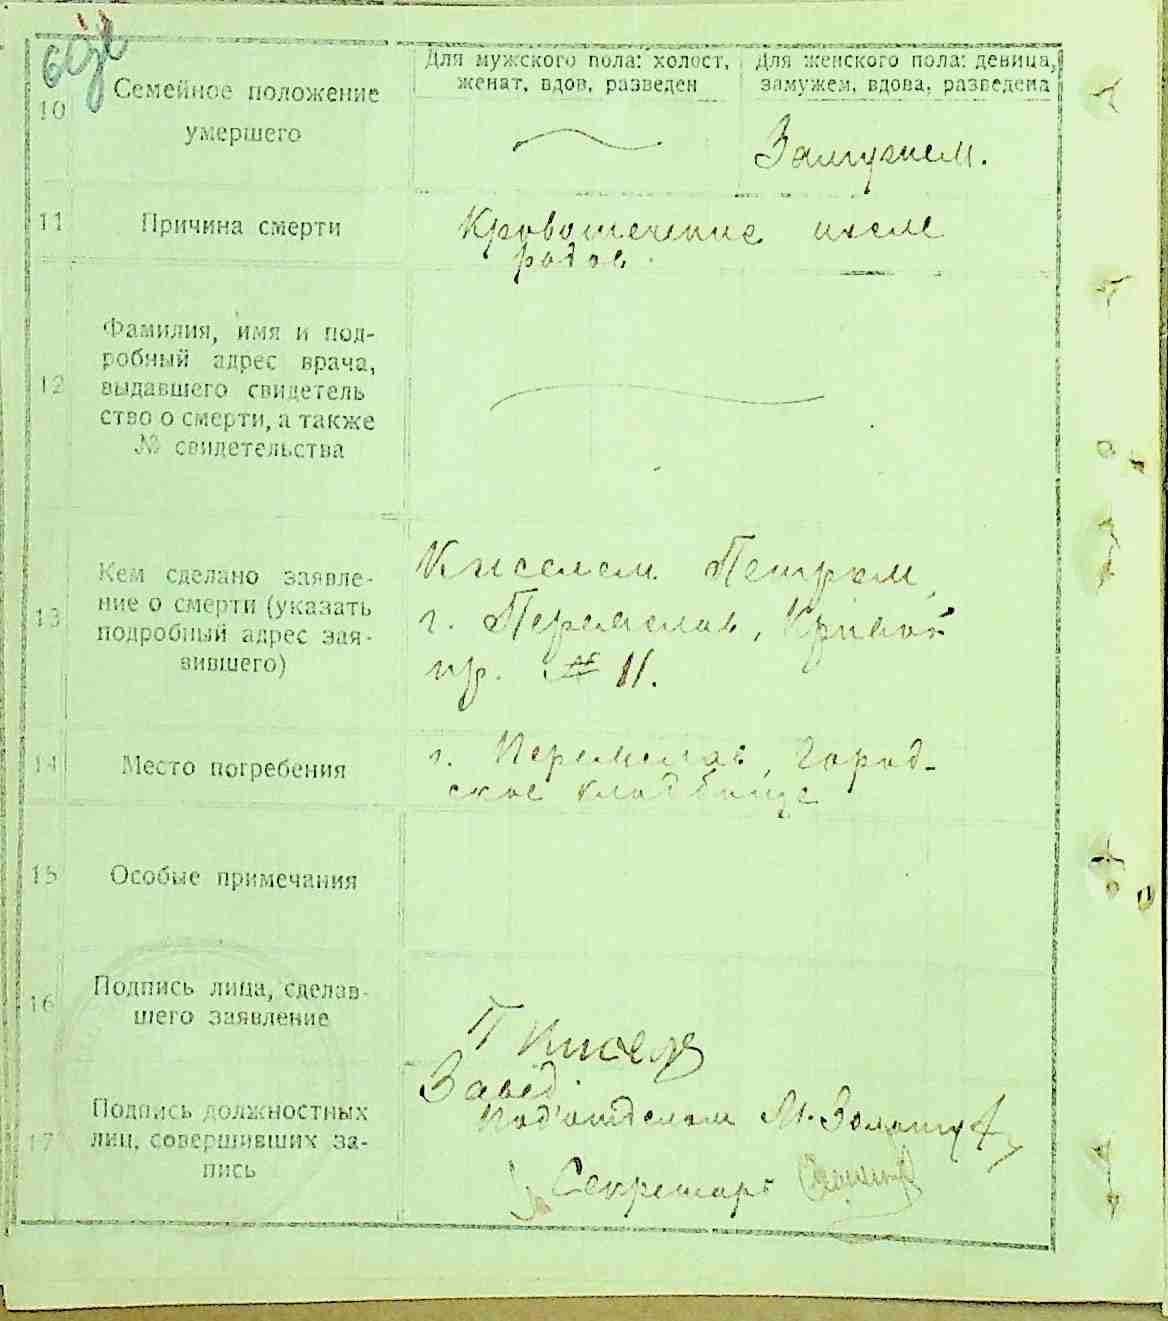 10
Семейное положение
умершего
Для мужского пола: холост,
женат, вдов, разведен
Для женского пола: девица,
замужем, вдова, разведена
Замужем.
11
Причина смерти
Кровотечение после
родов.
12
Фамилия, имя и под-
робный адрес врача,
выдавшего свидетель
ство о смерти, а также
№ свидетельства
13
Кем сделано заявле-
ние о смерти (указать
подробный адрес зая-
вившего)
Киселем Петром
г. Перемыслав, Кривой
пр. № 11.
14
Место погребения
г. Перемыслав, Город-
ское кладбище
15
Особые примечания
16
Подпись лица, сделав-
шего заявление
П Кисель
17
Подпись должностных
лиц, совершивших за-
пись
Завед.
Под'отделом М.
Секретарь